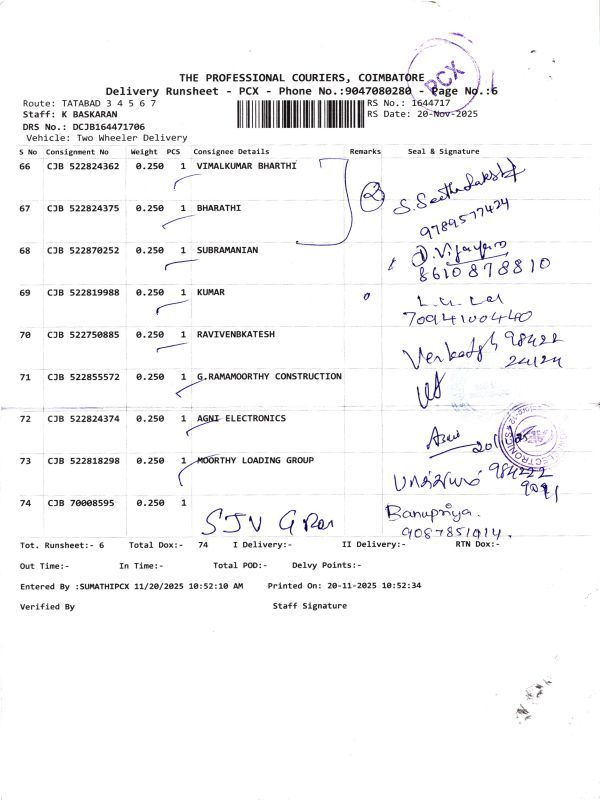 THE PROFESSIONAL COURIERS, COIMBATORE
Delivery Runsheet - PCX - Phone No.:9047080280 - Page No.:6
PCX
Route: TATABAD 3 4 5 6 7
RS No.: 1644717
Staff: K BASKARAN
RS Date: 20-Nov-2025
DRS No.: DCJB164471706
Vehicle: Two Wheeler Delivery
S No Consignment No Weight PCS Consignee Details Remarks Seal & Signature
66 CJB 522824362 0.250 1 VIMALKUMAR BHARTHI
2
9789577424
67 CJB 522824375 0.250 1 BHARATHI
68 CJB 522870252 0.250 1 SUBRAMANIAN
8610878810
69 CJB 522819988 0.250 1 KUMAR
7094100440
70 CJB 522750885 0.250 1 RAVIVENBKATESH
98422
24124
71 CJB 522855572 0.250 1 G.RAMAMOORTHY CONSTRUCTION
72 CJB 522824374 0.250 1 AGNI ELECTRONICS
73 CJB 522818298 0.250 1 MOORTHY LOADING GROUP
984222
9091
74 CJB 70008595 0.250 1
Banupriya.
9087851914.
Tot. Runsheet:- 6 Total Dox:- 74 I Delivery:- II Delivery:- RTN Dox:-
Out Time:- In Time:- Total POD:- Delvy Points:-
Entered By :SUMATHIPCX 11/20/2025 10:52:10 AM Printed On: 20-11-2025 10:52:34
Verified By Staff Signature